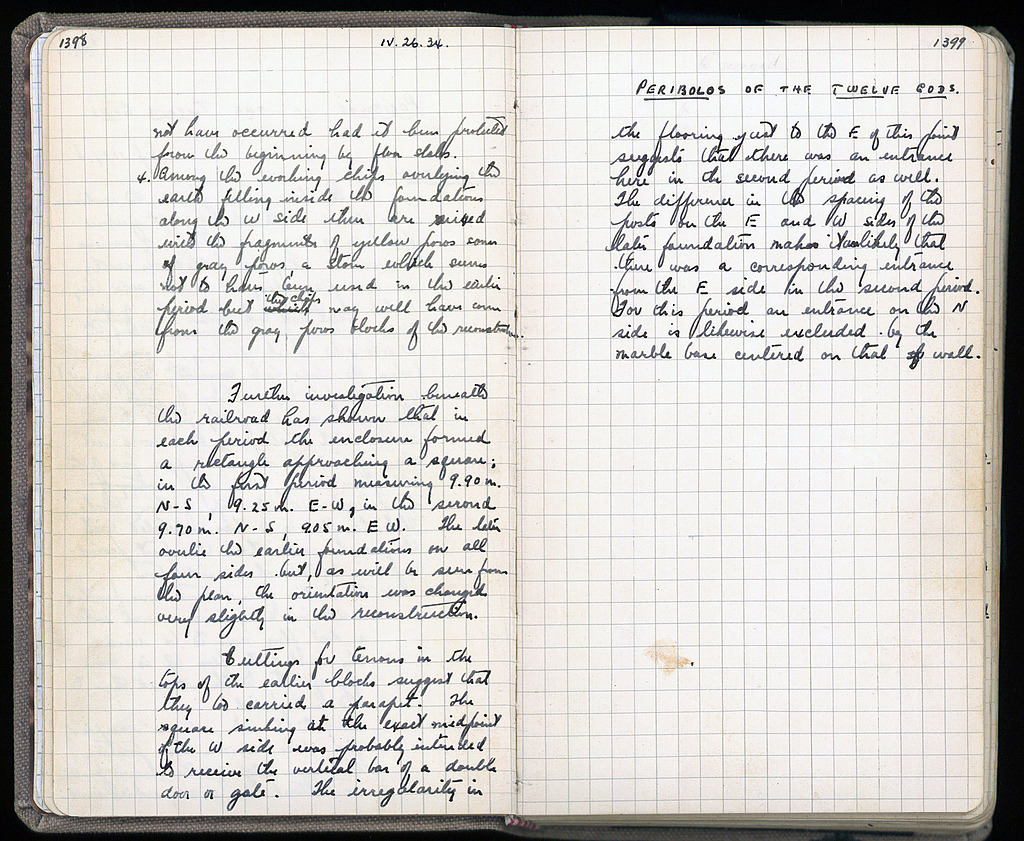 1398
IV. 26. 34.
not have occurred had it been protected
from the beginning by floor slabs.
4. Among the working chips overlying the
earth filling inside the foundations
along the W side there are mixed
with the fragments of yellow poros some
of gray poros, a stone which seems
not to have been used in the earlier
period but the chips may well have come
from the gray poros blocks of the reconstruction.
Further investigation beneath
the railroad has shown that in
each period the enclosure formed
a rectangle approaching a square;
in the first period measuring 9.90 m.
N-S, 9.25 m. E-W, in the second
9.70 m. N-S, 9.05 m. E W. The later
overlie the earlier foundations on all
four sides but, as will be seen from
the plan, the orientation was changed
very slightly in the reconstruction.
Cuttings for tenons in the
tops of the earlier blocks suggest that
they too carried a parapet. The
square sinking at the exact midpoint
of the W side was probably intended
to receive the vertical bar of a double
door or gate. The irregularity in
1399
PERIBOLOS OF THE TWELVE GODS.
the flooring just to the E of this point
suggests that there was an entrance
here in the second period as well.
The difference in the spacing of the
posts on the E and W sides of the
later foundation makes unlikely that
there was a corresponding entrance
from the E side in the second period.
For this period an entrance on the N
side is likewise excluded by the
marble base centered on that wall.